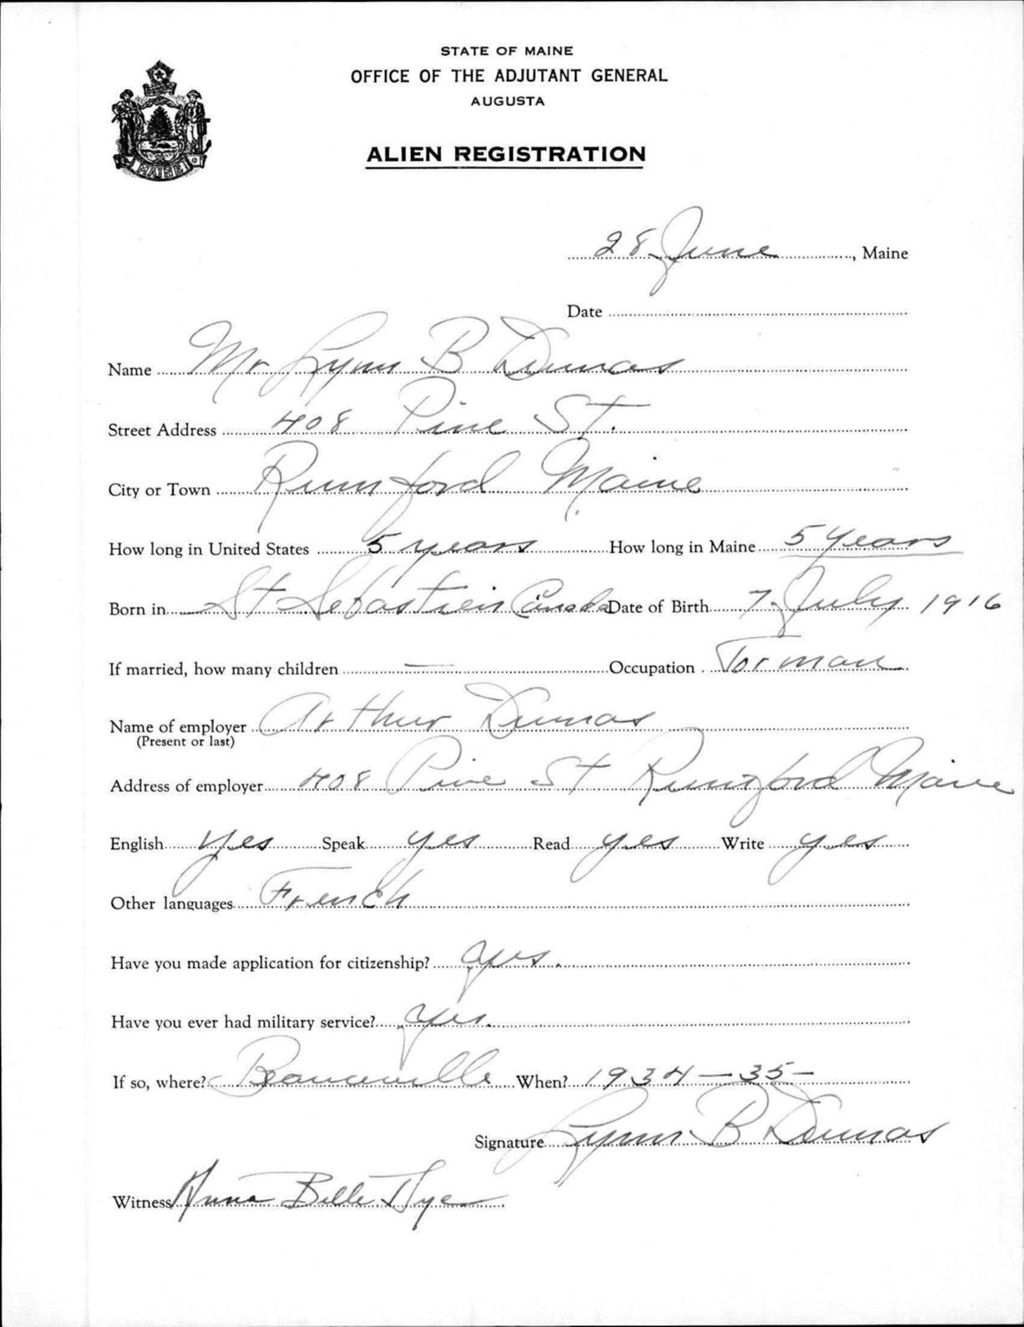 STATE OF MAINE
OFFICE OF THE ADJUTANT GENERAL
AUGUSTA
ALIEN REGISTRATION
MAINE
28 June, Maine
Date
Name Mr Lynn B Dumas
Street Address 408 Pine St.
City or Town Rumford Maine
How long in United States 5 years How long in Maine 5 Years
Born in St Sebastien Canada Date of Birth 7 July 1916
If married, how many children — Occupation Torman
Name of employer Arthur Dumas
(Present or last)
Address of employer 408 Pine St Rumford Maine
English yes Speak yes Read yes Write yes
Other languages French
Have you made application for citizenship? yes.
Have you ever had military service? yes.
If so, where? Beauceville When? 1934-35-
Signature Lynn B Dumas
Witness Anna Belle Nye